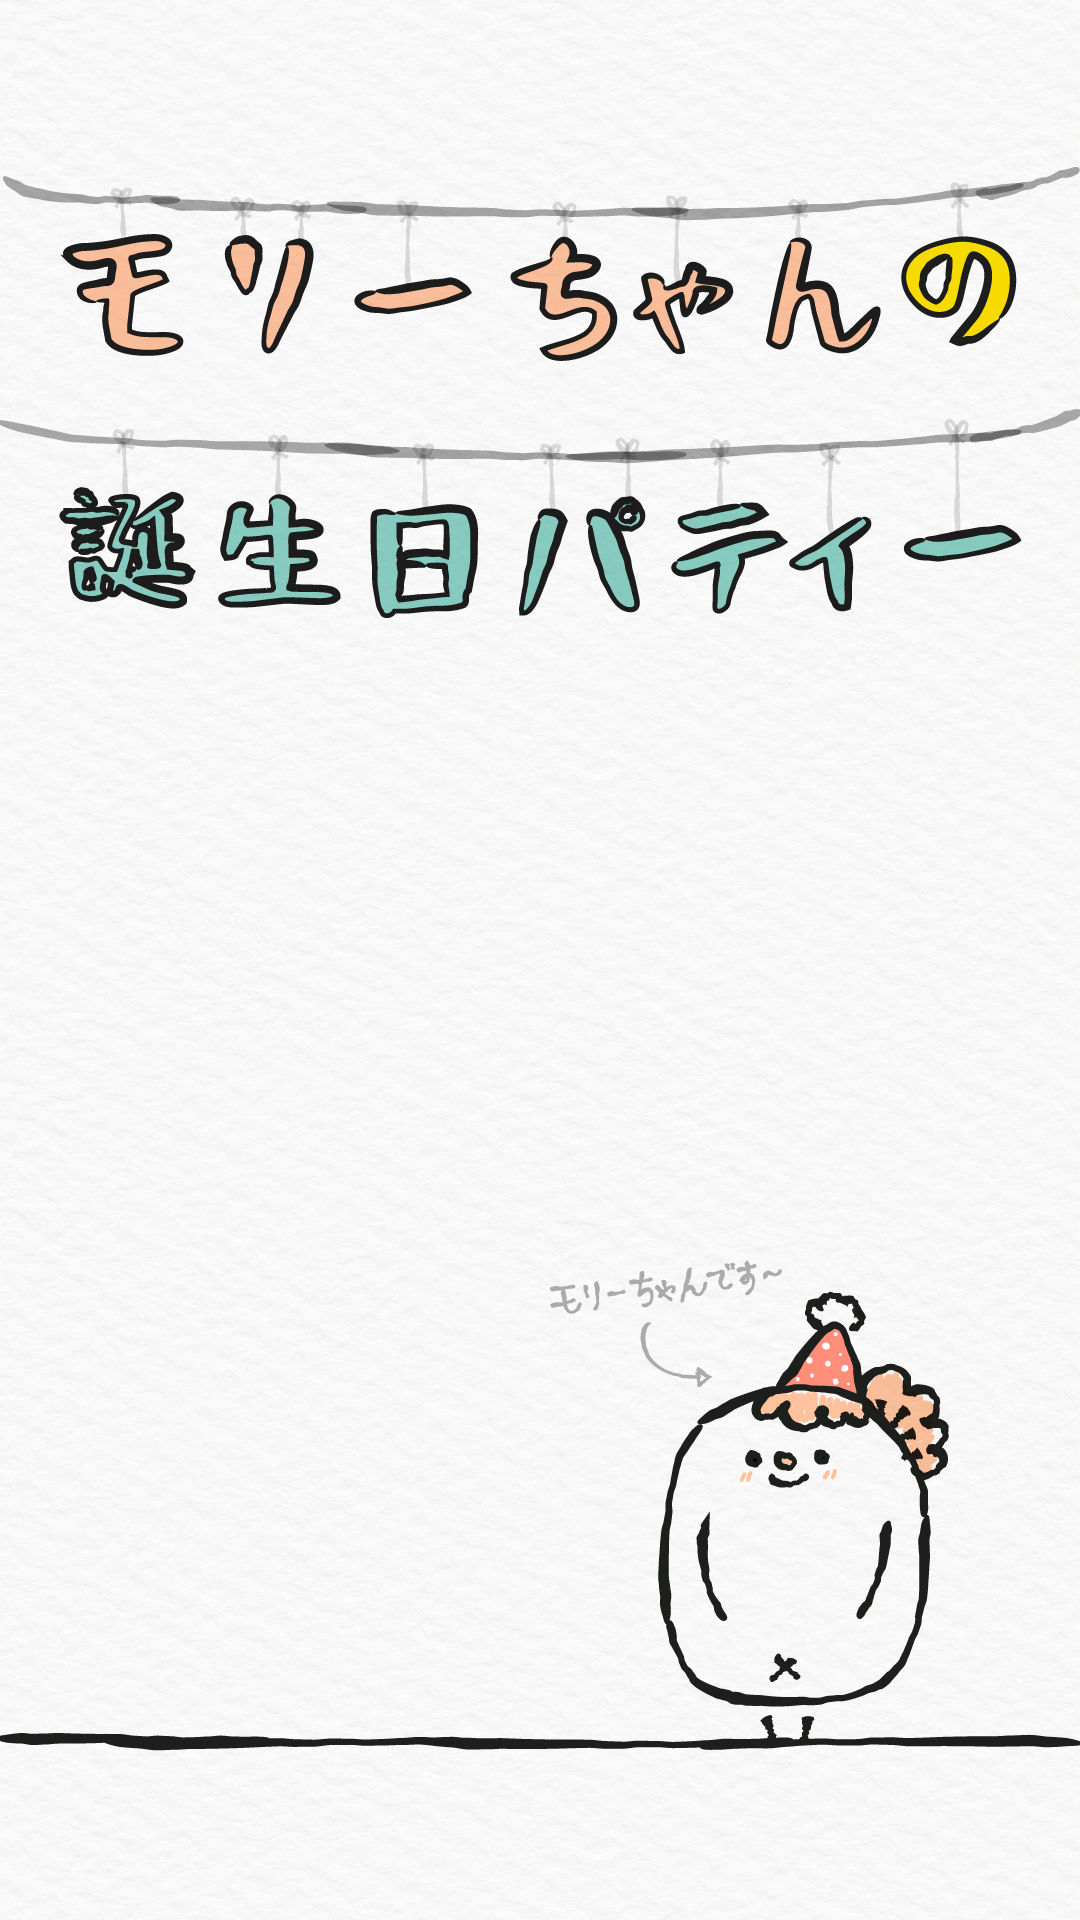 モリーちゃんの
誕生日パティー
モリーちゃんです~